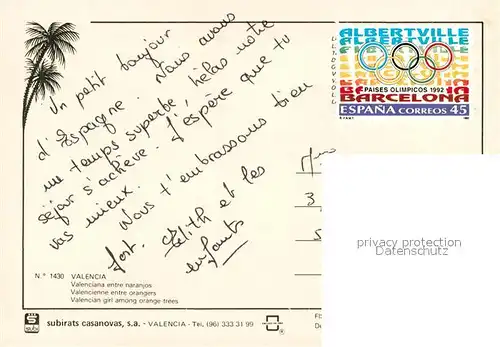 Un petit bonjour
d'Espagne. Nous avons
un temps superbe, hélas notre
séjour s'achève. J'espère que tu
vas mieux. Nous t'embrassons bien
fort. Edith et les
enfants
ALBERTVILLE
ALBERTVILLE
PAISES OLIMPICOS 1992
BARCELONA
ESPAÑA CORREOS 45
privacy protection
Datenschutz
N.º 1430 VALENCIA
Valenciana entre naranjos
Valencienne entre orangers
Valencian girl among orange trees
subirats casanovas, s.a. - VALENCIA - Tel. (96) 333 31 99